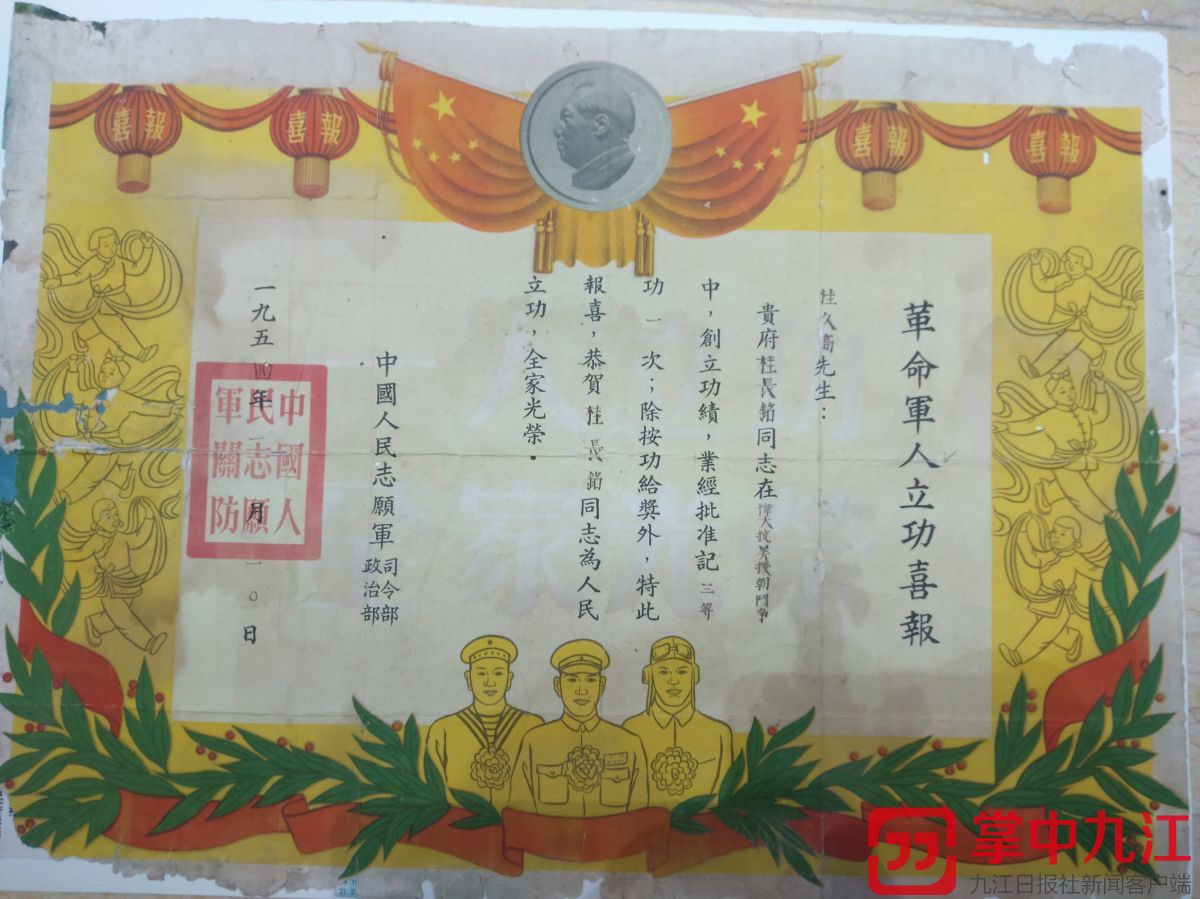 喜報
喜報
喜報
喜報
革命軍人立功喜報
桂久先生：
貴府桂長銘同志在偉大抗美援朝鬥爭
中，創立功績，業經批准記三等
功一次；除按功給獎外，特此
報喜，恭賀桂長銘同志為人民
立功，全家光榮。
中國人民志願軍司令部
政治部
一九五四年月一〇日
中國人
民志願
軍關防
掌中九江
九江日报社新闻客户端